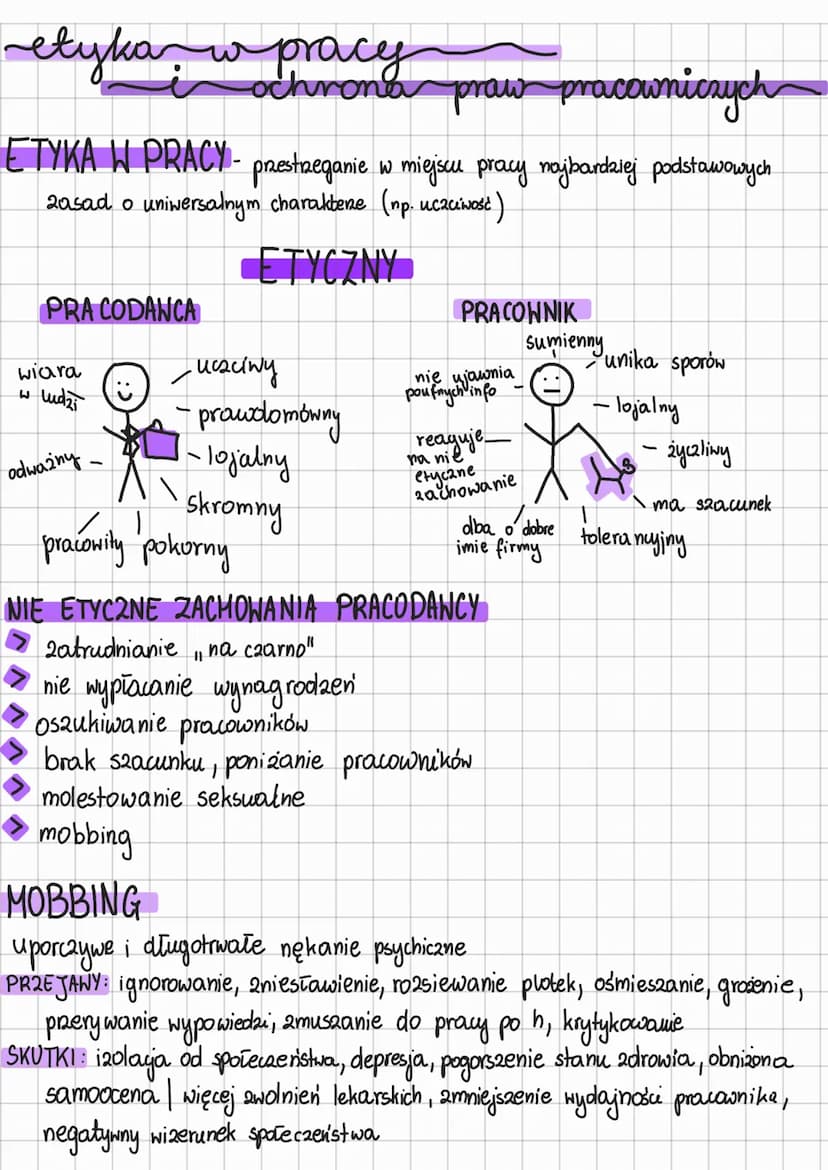 etyka w pracy
i ochrona praw pracowniczych
ETYKA W PRACY - przestrzeganie w miejscu pracy najbardziej podstawowych
zasad o uniwersalnym charakterze (np. uczciwość)
ETYCZNY
PRACODAWCA
wiara
w ludzi
uczciwy
prawdomówny
odważny
lojalny
skromny
pracowity
pokorny
PRACOWNIK
sumienny
nie ujawnia
poufnych info
unika sporów
lojalny
reaguje
na nie
etyczne
zachowanie
życzliwy
ma szacunek
dba o dobre
imie firmy
tolerancyjny
NIE ETYCZNE ZACHOWANIA PRACODAWCY
> zatrudnianie „na czarno"
> nie wypłacanie wynagrodzeń
> oszukiwanie pracowników
> brak szacunku, poniżanie pracowników
> molestowanie seksualne
> mobbing
MOBBING
uporczywe i długotrwałe nękanie psychiczne
PRZEJAWY: ignorowanie, zniesławienie, rozsiewanie plotek, ośmieszanie, grożenie,
przerywanie wypowiedzi, zmuszanie do pracy po h, krytykowanie
SKUTKI: izolacja od społeczeństwa, depresja, pogorszenie stanu zdrowia, obniżona
samoocena | więcej zwolnień lekarskich, zmniejszenie wydajności pracownika,
negatywny wizerunek społeczeństwa